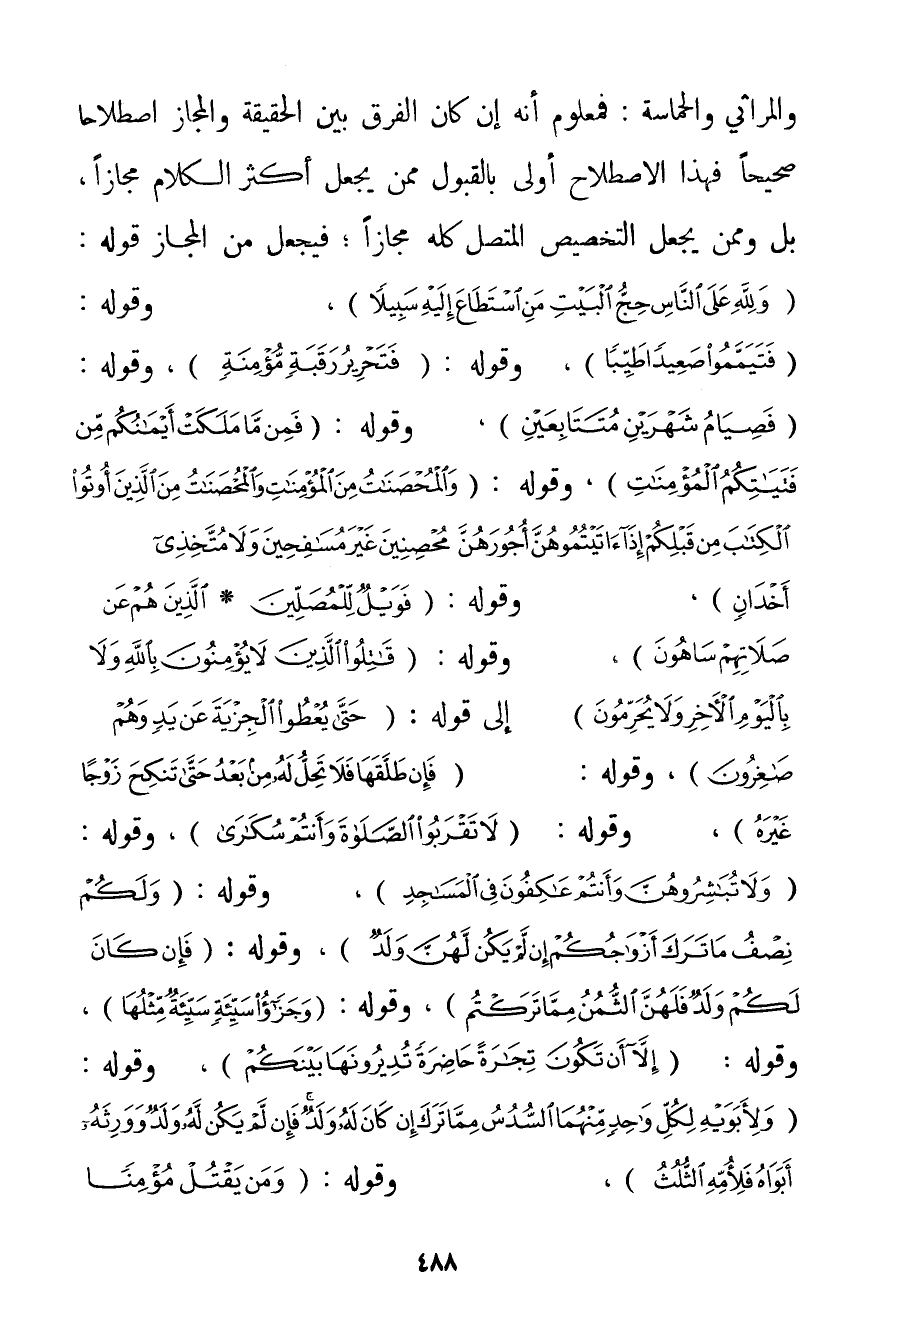 والمراثي والحماسة : فمعلوم أنه إن كان الفرق بين الحقيقة والمجاز اصطلاحا
صحيحاً فهذا الاصطلاح أولى بالقبول ممن يجعل أكثر الكلام مجازاً ،
بل وممن يجعل التخصيص المتصل كله مجازاً ؛ فيجعل من المجاز قوله :
( وَلِلَّهِ عَلَى ٱلنَّاسِ حِجُّ ٱلْبَيْتِ مَنِ ٱسْتَطَاعَ إِلَيْهِ سَبِيلًا ) ، وقوله :
( فَتَيَمَّمُوا۟ صَعِيدًا طَيِّبًا ) ، وقوله : ( فَتَحْرِيرُ رَقَبَةٍ مُّؤْمِنَةٍ ) ، وقوله :
( فَصِيَامُ شَهْرَيْنِ مُتَتَابِعَيْنِ ) ، وقوله : ( فَمِن مَّا مَلَكَتْ أَيْمَٰنُكُم مِّن
فَتَيَٰتِكُمُ ٱلْمُؤْمِنَٰتِ ) ، وقوله : ( وَٱلْمُحْصَنَٰتُ مِنَ ٱلْمُؤْمِنَٰتِ وَٱلْمُحْصَنَٰتُ مِنَ ٱلَّذِينَ أُوتُوا۟
ٱلْكِتَٰبَ مِن قَبْلِكُمْ إِذَآ ءَاتَيْتُمُوهُنَّ أُجُورَهُنَّ مُحْصِنِينَ غَيْرَ مُسَٰفِحِينَ وَلَا مُتَّخِذِىٓ
أَخْدَانٍ ) ، وقوله : ( فَوَيْلٌ لِّلْمُصَلِّينَ * ٱلَّذِينَ هُمْ عَن
صَلَاتِهِمْ سَاهُونَ ) ، وقوله : ( قَٰتِلُوا۟ ٱلَّذِينَ لَا يُؤْمِنُونَ بِٱللَّهِ وَلَا
بِٱلْيَوْمِ ٱلْأَخِرِ وَلَا يُحَرِّمُونَ ) إلى قوله : ( حَتَّىٰ يُعْطُوا۟ ٱلْجِزْيَةَ عَن يَدٍ وَهُمْ
صَٰغِرُونَ ) ، وقوله : ( فَإِن طَلَّقَهَا فَلَا تَحِلُّ لَهُۥ مِنۢ بَعْدُ حَتَّىٰ تَنكِحَ زَوْجًا
غَيْرَهُ ) ، وقوله : ( لَا تَقْرَبُوا۟ ٱلصَّلَوٰةَ وَأَنتُمْ سُكَٰرَىٰ ) ، وقوله :
( وَلَا تُبَٰشِرُوهُنَّ وَأَنتُمْ عَٰكِفُونَ فِى ٱلْمَسَٰجِدِ ) ، وقوله : ( وَلَكُمْ
نِصْفُ مَا تَرَكَ أَزْوَٰجُكُمْ إِن لَّمْ يَكُن لَّهُنَّ وَلَدٌ ) ، وقوله : ( فَإِن كَانَ
لَكُمْ وَلَدٌ فَلَهُنَّ ٱلثُّمُنُ مِمَّا تَرَكْتُم ) ، وقوله : ( وَجَزَٰٓؤُا۟ سَيِّئَةٍ سَيِّئَةٌ مِّثْلُهَا ) ،
وقوله : ( إِلَّآ أَن تَكُونَ تِجَٰرَةً حَاضِرَةً تُدِيرُونَهَا بَيْنَكُمْ ) ، وقوله :
( وَلِأَبَوَيْهِ لِكُلِّ وَٰحِدٍ مِّنْهُمَا ٱلسُّدُسُ مِمَّا تَرَكَ إِن كَانَ لَهُۥ وَلَدٌ ۚ فَإِن لَّمْ يَكُن لَّهُۥ وَلَدٌ وَوَرِثَهُۥٓ
أَبَوَاهُ فَلِأُمِّهِ ٱلثُّلُثُ ) ، وقوله : ( وَمَن يَقْتُلْ مُؤْمِنًا
٤٨٨